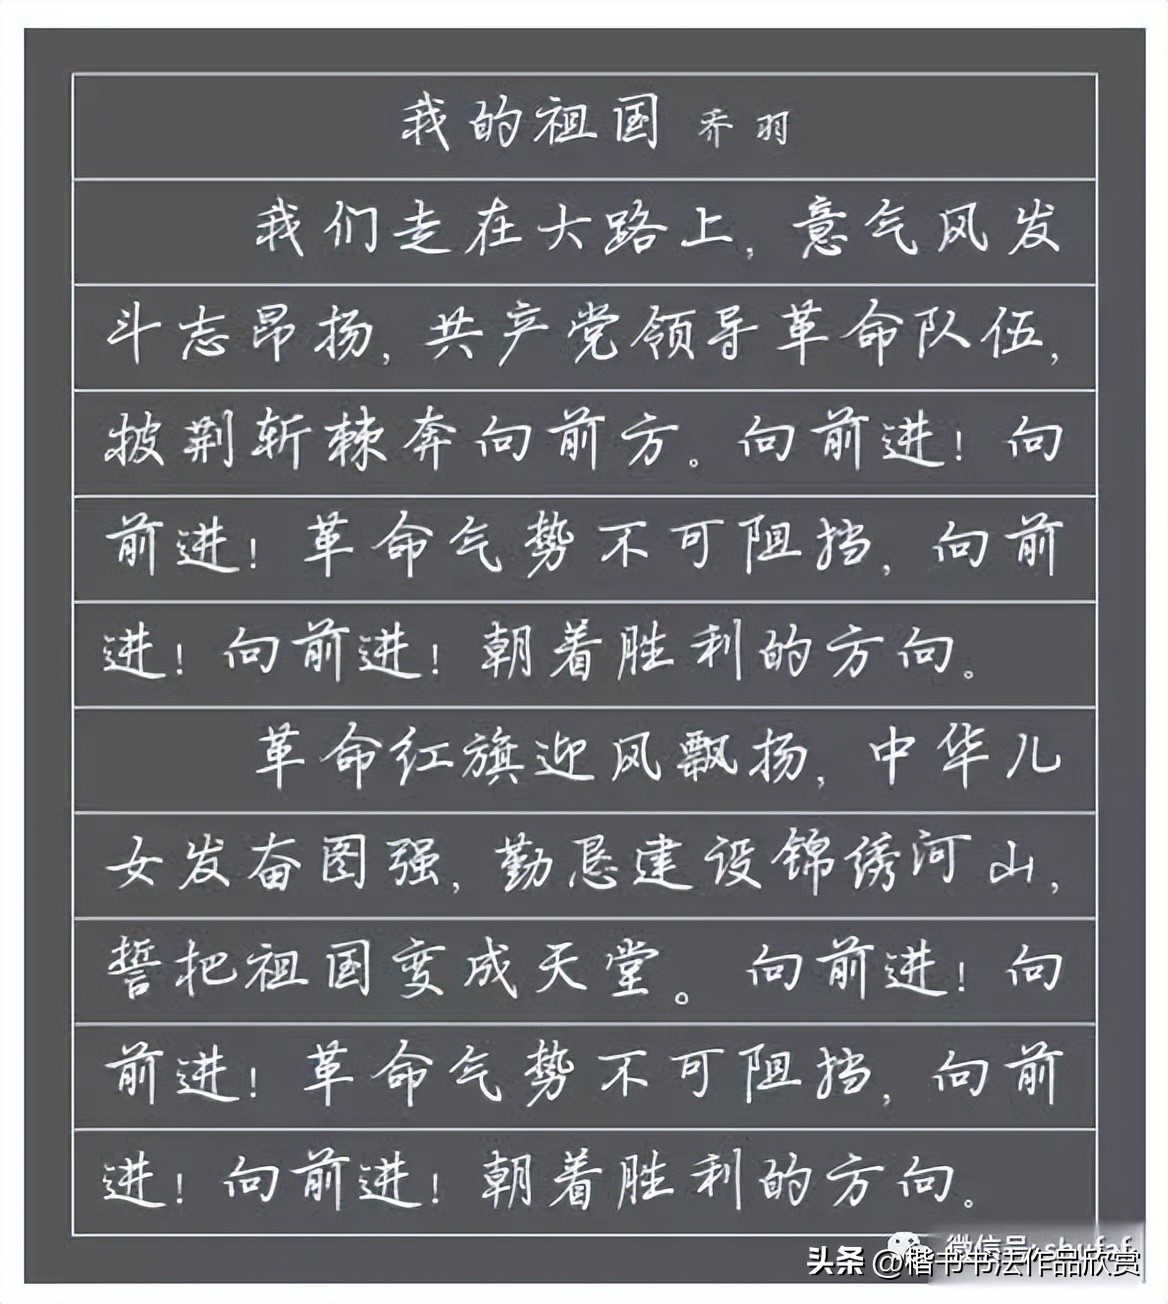 我的祖国 乔羽
我们走在大路上，意气风发
斗志昂扬，共产党领导革命队伍，
披荆斩棘奔向前方。向前进！向
前进！革命气势不可阻挡，向前
进！向前进！朝着胜利的方向。
革命红旗迎风飘扬，中华儿
女发奋图强，勤恳建设锦绣河山，
誓把祖国变成天堂。向前进！向
前进！革命气势不可阻挡，向前
进！向前进！朝着胜利的方向。
微信号: shufaf
头条 @楷书书法作品欣赏